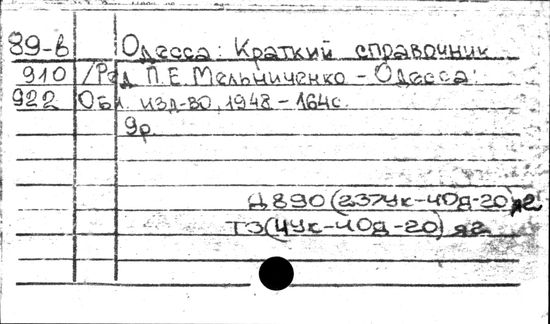 89-в Одесса: Краткий справочник
910 /Ред. П.Е. Мельниченко - Одесса:
922 Обл. изд-во, 1948 - 164с.
9р.
Д890(237Ук-4Од-20)я2
Т3(4Ук-4Од-20)я2